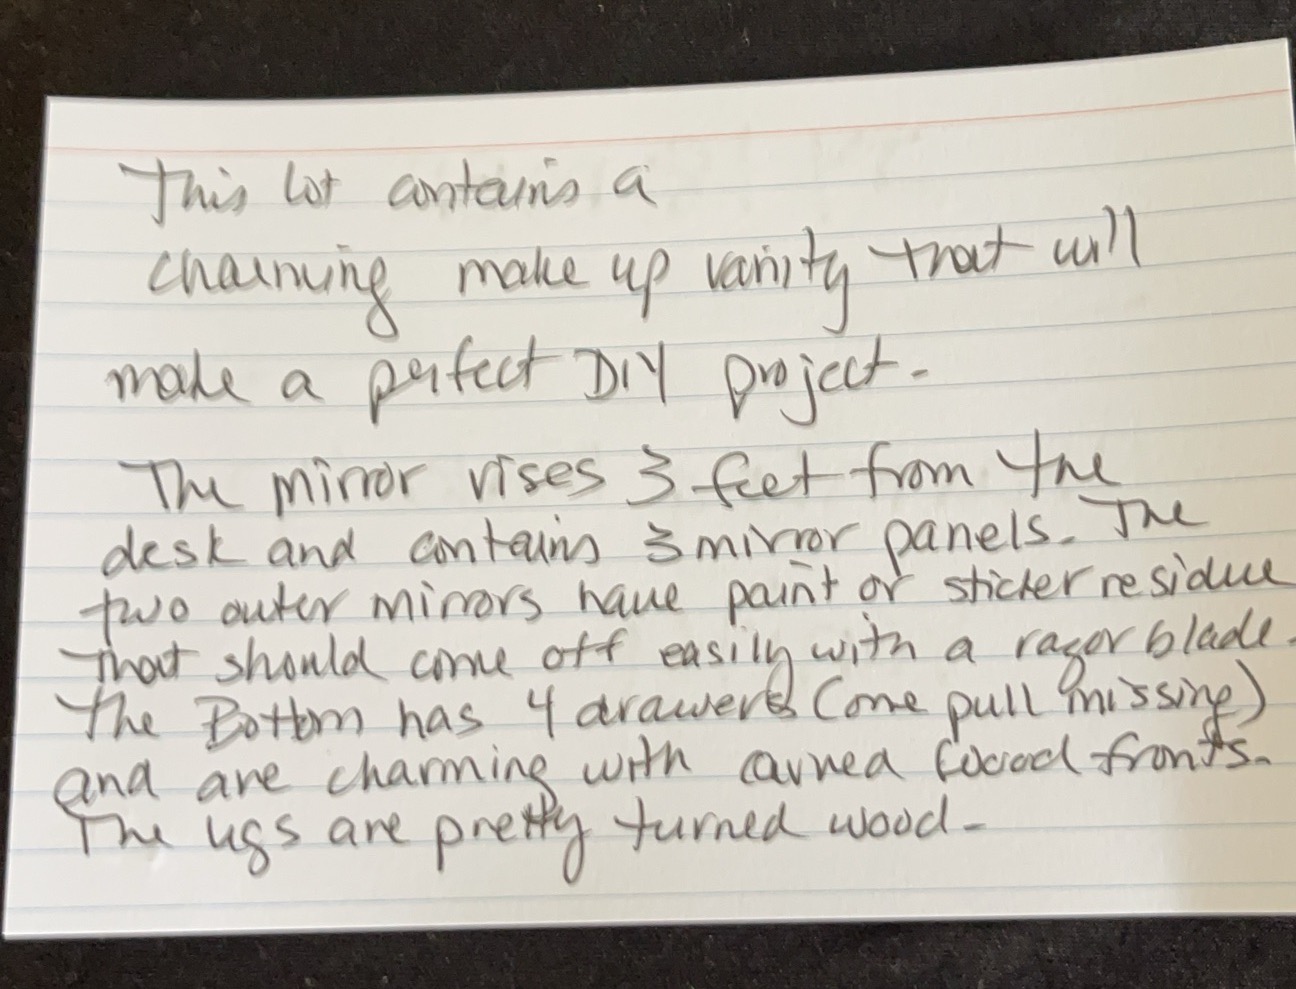 This lot contains a
charming make up vanity that will
make a perfect DIY project.
The mirror rises 3 feet from the
desk and contains 3 mirror panels. The
two outer mirrors have paint or sticker residue
that should come off easily with a razor blade.
The Bottom has 4 drawers (one pull missing)
and are charming with carved wood fronts.
The legs are pretty turned wood.